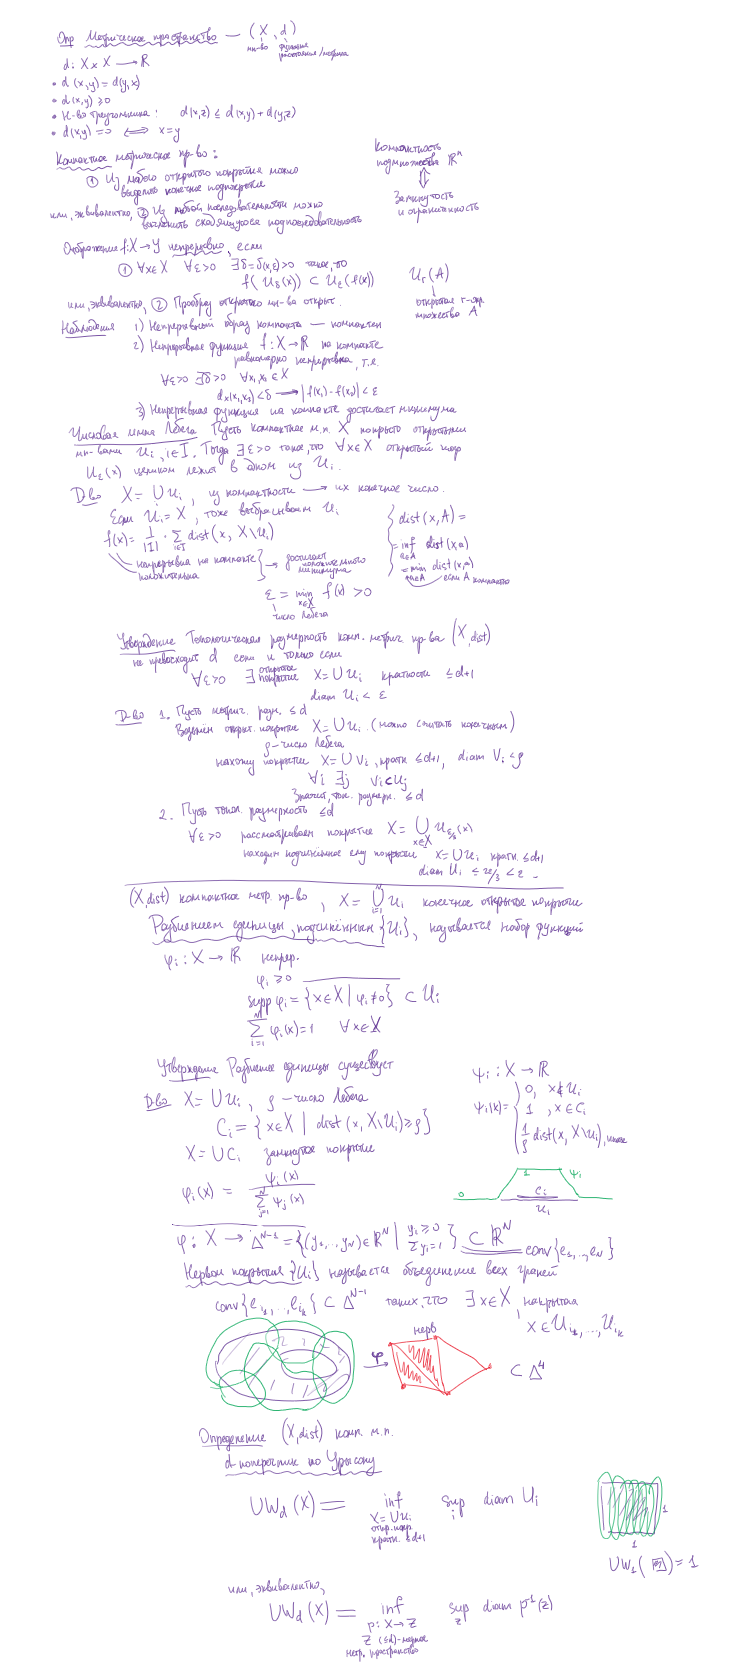 Опр Метрическое пространство — (X, d)
мн-во функция расстояния/метрика
d: X × X → ℝ
• d(x,y) = d(y,x)
• d(x,y) ≥ 0
• Н-во треугольника: d(x,z) ≤ d(x,y) + d(y,z)
• d(x,y) = 0 ⟺ x = y
Компактное метрическое пр-во:
① Из любого открытого покрытия можно
выделить конечное подпокрытие
или, эквивалентно, ② Из любой последовательности можно
вычленить сходящуюся подпоследовательность
Компактность
подмножества ℝⁿ
⇕
Замкнутость
и ограниченность
Отображение f: X → Y непрерывно, если
① ∀x∈X ∀ε>0 ∃δ=δ(x,ε)>0 такое, что
f(U_δ(x)) ⊂ U_ε(f(x))
или, эквивалентно, ② Прообраз открытого мн-ва открыт.
U_r(A)
открытая r-окр.
множества A
Наблюдения 1) Непрерывный образ компакта — компактен
2) Непрерывная функция f: X → ℝ на компакте
равномерно непрерывна, т.е.
∀ε>0 ∃δ>0 ∀x₁,x₂ ∈ X
d_X(x₁,x₂) < δ → |f(x₁) - f(x₂)| < ε
3) Непрерывная функция на компакте достигает минимума
Числовая имма Лебега Пусть компактное м.п. X покрыто открытыми
мн-вами U_i, i∈I. Тогда ∃ε>0 такое, что ∀x∈X открытый шар
U_ε(x) целиком лежит в одном из U_i.
Д-во X = ∪U_i, из компактности → их конечное число.
Если U_i = X, тоже выбрасываем U_i
f(x) = 1/|I| · Σ_{i∈I} dist(x, X\U_i)
непрерывна на компакте
положительна
→ достигает
положительного
минимума
ε = min_{x∈X} f(x) > 0
число Лебега
dist(x,A) =
= inf_{a∈A} dist(x,a)
= min_{a∈A} dist(x,a)
если A компактно
Утверждение Топологическая размерность комп. метрич. пр-ва (X, dist)
не превосходит d если и только если
∀ε>0 ∃ открытое покрытие X = ∪U_i кратности ≤ d+1
diam U_i < ε
Д-во 1. Пусть метрич. разм. ≤ d
Возьмём открыт. покрытие X = ∪U_i. (можно считать конечным)
ρ - число Лебега
нахожу покрытие X = ∪V_i, кратн ≤ d+1, diam V_i < ρ
∀i ∃j V_i ⊂ U_j
Значит, топ. размерн. ≤ d
2. Пусть топол. размерность ≤ d
∀ε>0 рассматриваем покрытие X = ∪_{x∈X} U_{ε/3}(x)
находим подчинённое ему покрытие X = ∪U_i кратн. ≤ d+1
diam U_i ≤ 2ε/3 < ε.
(X, dist) компактное метр. пр-во, X = ∪_{i=1}^N U_i конечное открытое покрытие
Разбиением единицы, подчинённым {U_i}, называется набор функций
φ_i: X → ℝ непрер.
φ_i ≥ 0
supp φ_i = {x∈X | φ_i ≠ 0} ⊂ U_i
Σ_{i=1}^N φ_i(x) = 1 ∀x∈X
Утверждение Разбиение единицы существует
Д-во X = ∪U_i, ρ - число Лебега
C_i = {x∈X | dist(x, X\U_i) ≥ ρ}
X = ∪C_i замкнутое покрытие
φ_i(x) = ψ_i(x) / Σ_{j=1}^N ψ_j(x)
ψ_i: X → ℝ
ψ_i(x) = { 0, x∉U_i
1, x∈C_i
1/ρ dist(x, X\U_i), иначе
0 1 ψ_i
C_i
U_i
φ: X → Δ^{N-1} = {(y₁,...,y_N)∈ℝ^N | y_i ≥ 0 Σy_i = 1} ⊂ ℝ^N
conv{e₁,...,e_N}
Нервом покрытия {U_i} называется объединение всех граней
conv{e_{i₁},...,e_{i_k}} ⊂ Δ^{N-1} таких, что ∃x∈X накрытая
x∈U_{i₁},...,U_{i_k}
нерв
φ
⊂ Δ⁴
Определение (X, dist) комп. м.п.
d-поперечник по Урысону
UW_d(X) = inf sup_i diam U_i
X = ∪U_i
откр. покр.
кратн. ≤ d+1
1
1
UW₁( ) = 1
или, эквивалентно,
UW_d(X) = inf sup_z diam p⁻¹(z)
p: X → Z
Z (≤d)-мерное
метр. пространство